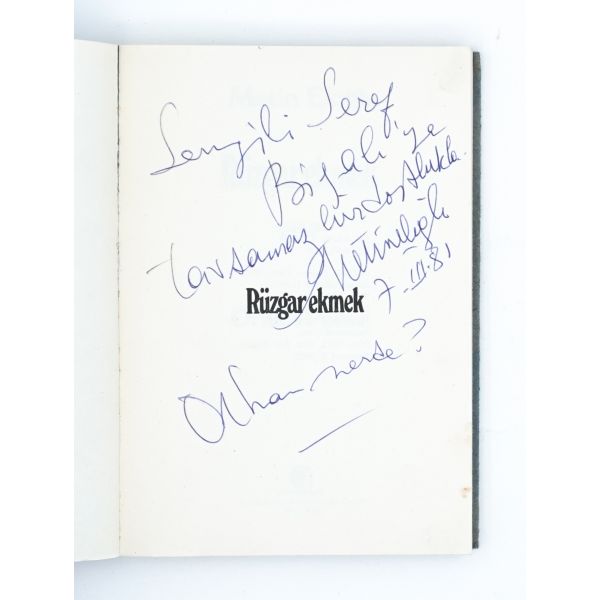 Sevgili Şeref
Birsali'ya
tavsamaz bir dostlukla
Metineloğlu
7.III.81
Rüzgar ekmek
Orhan nerde?